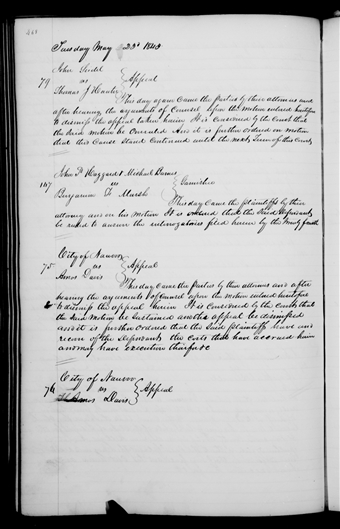 Tuesday May 23d 1843
John
79 vs } Appeal
Thomas J
This day again Came the Parties by their attornies and
after hearing the arguments of Counsel upon the Motion entered heretofore
to dismiss the appeal taken herein It is Considered by the Court that
the said Motion be Overruled And it is further ordered on motion
that this Cause Stand Continued until the next Term of this Court
John P Haggard & Michael
147 vs } Garnishee
Benjamin F Marsh
This day Came the plaintiffs by their
attorney and on his Motion It is ordered that the Said defendant
be ruled to answer the interrogatories filed herein by the
City of Nauvoo
75 vs } Appeal
Amos Davis
This day Came the parties by their attornies and after
hearing the arguments of Counsel upon the Motion entered heretofore
to dismiss the appeal herein It is Considered by the Court that
the said Motion be Sustained and the appeal be dismissed
and it is further Ordered that the Said plaintiffs have and
recover of the Defendants the Costs that have accrued herein
and may have Execution therefore
City of Nauvoo
76 vs } Appeal
Amos Davis